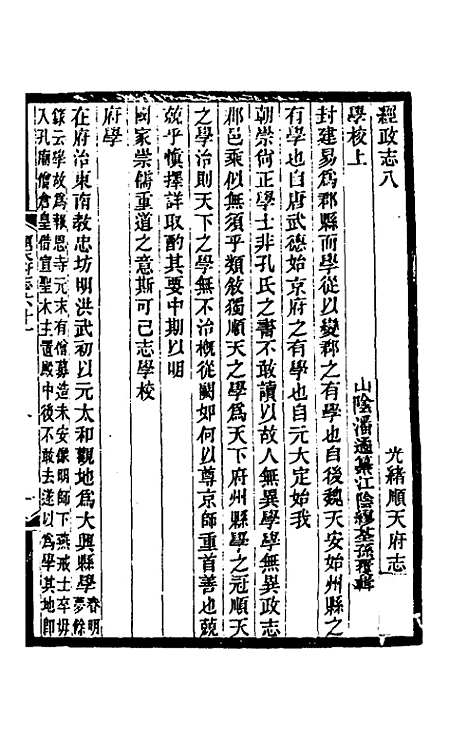 經政志八　光緒順天府志
學校上　山陰潘遹纂江陰繆荃孫覆輯
封建易爲郡縣而學從以變郡之有學也自後魏天安始州縣之
有學也自唐武德始京府之有學也自元大定始我
朝崇尙正學士非孔氏之書不敢讀以故人無異學學無異政志
郡邑乘似無須乎類敘獨順天之學爲天下府州縣學之冠順天
之學治則天下之學無不治概從闕如何以尊京師重首善也兢
兢乎愼擇詳取酌其要中期以明
國家崇儒重道之意斯可已志學校
府學
在府治東南教忠坊明洪武初以元太和觀地爲大興縣學春明
夢餘
錄云學故爲報恩寺元末有僧募造未安像明師下燕戒士卒毋
入孔廟僧倉皇借宣聖木主置殿中後不敢去遂以爲學其地卽